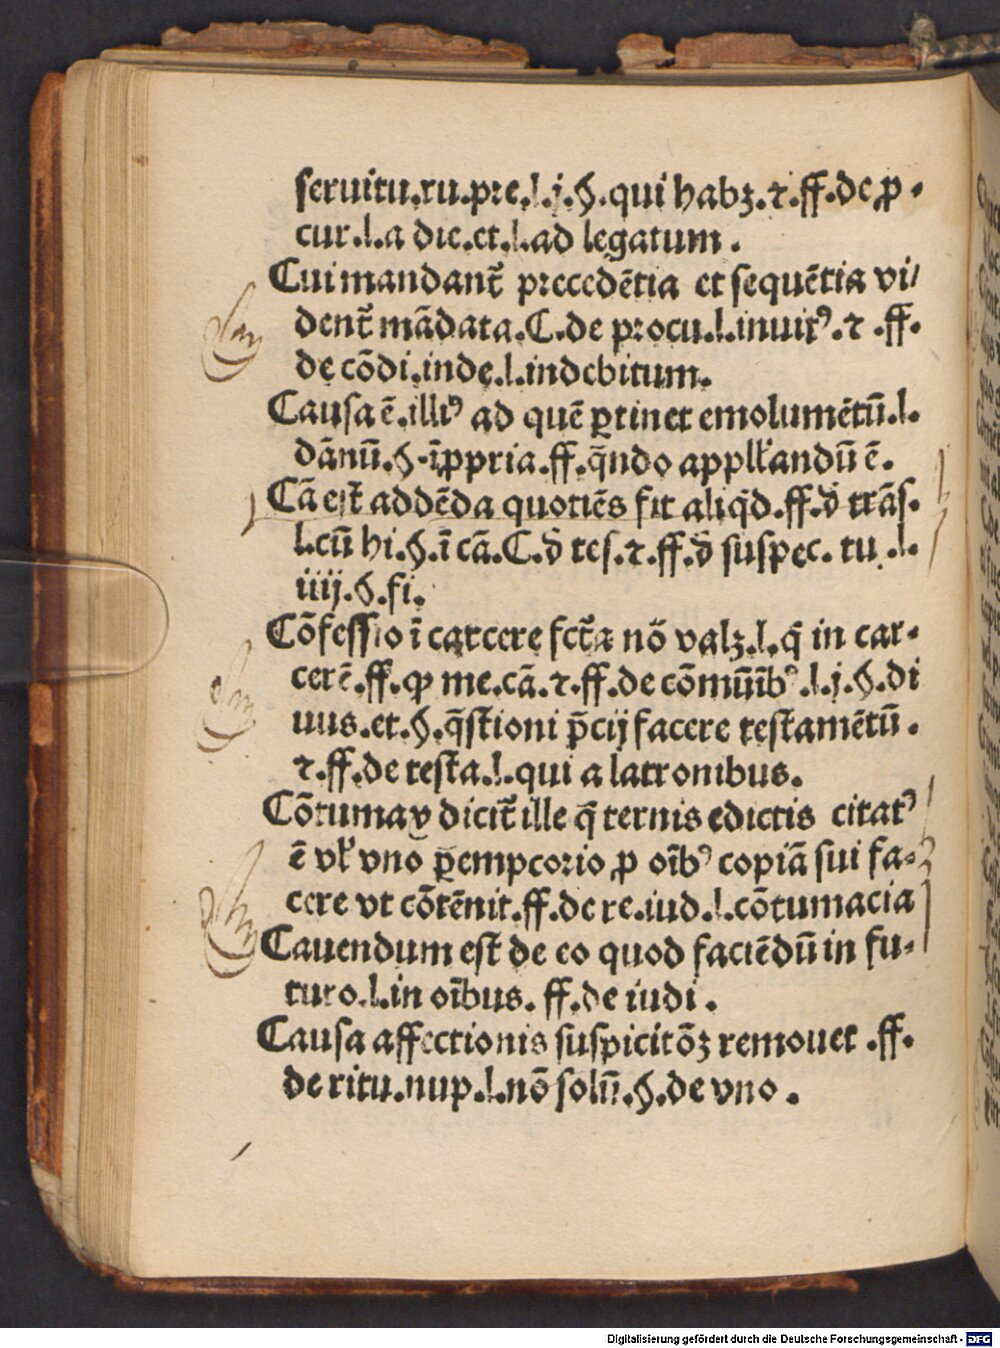 seruitu.ru.pre.l.j.§.qui habꝫ.⁊.ff.de ꝓ-
cur.l.a die.et.l.ad legatum.
Cui mandant̄ precedētia et sequētia vi/
dent̄ mādata.C.de procu.l.inuitꝰ.⁊.ff.
de cōdi.inde.l.indebitum.
Causa ē.illiꝰ ad quē ꝑtinet emolumētū.l.
dānū.§.īꝓpria.ff.q̄ndo appellandū ē.
Cā est addēda quotiēs fit aliq̇d.ff.d̄ trās.
l.cū hi.§.ī cā.C.d̄ tes.⁊.ff.d̄ suspec.tu.l.
iiij.§.fi.
Cōfessio ī carcere fct̄a nō valꝫ.l.q̄ in car-
cerē.ff.ꝙ me.cā.⁊.ff.de cōmūībꝰ.l.j.§.di
uus.et.§.q̄stioni p̄cij facere testamētū.
⁊.ff.de testa.l.qui a latronibus.
Cōtumax dicit̄ ille q̄ ternis edictis citatꝰ
ē vl̄ vno ꝑemptorio ꝓ oībꝰ copiā sui fa-
cere vt cōtēnit.ff.de re.iud.l.cōtumacia
Cauendum est de eo quod faciēdū in fu-
turo.l.in oībus.ff.de iudi.
Causa affectionis suspicitōꝫ remouet.ff.
de ritu.nup.l.nō solū.§.de vno.
Digitalisierung gefördert durch die Deutsche Forschungsgemeinschaft - DFG